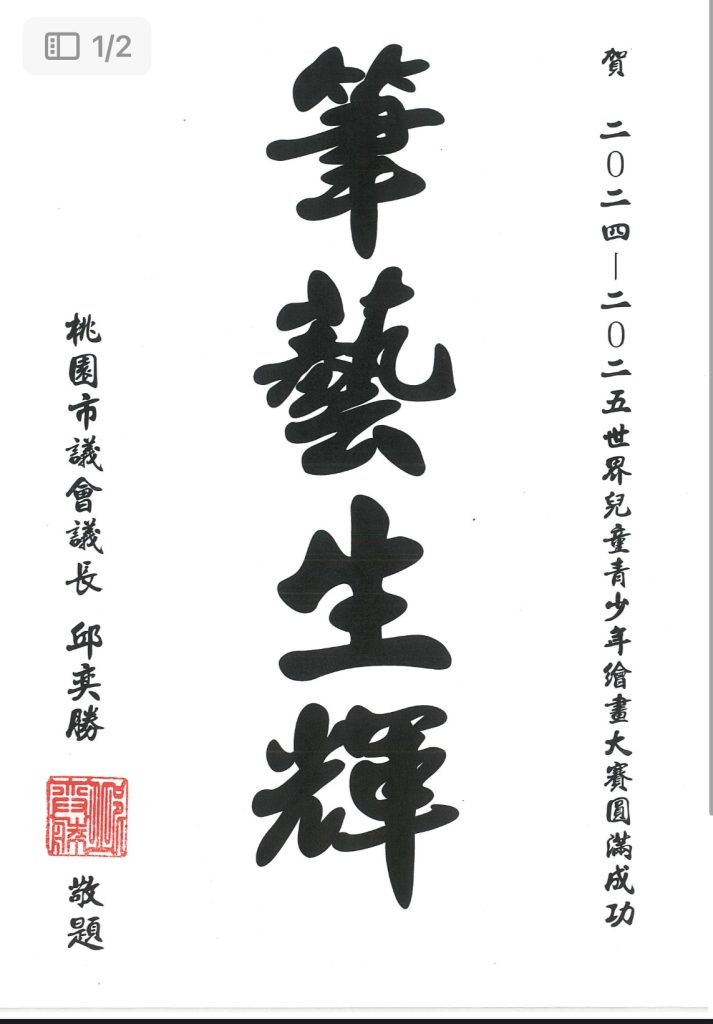 1/2
賀 二〇二四—二〇二五世界兒童青少年繪畫大賽圓滿成功
筆藝生輝
桃園市議會議長 邱奕勝
敬題